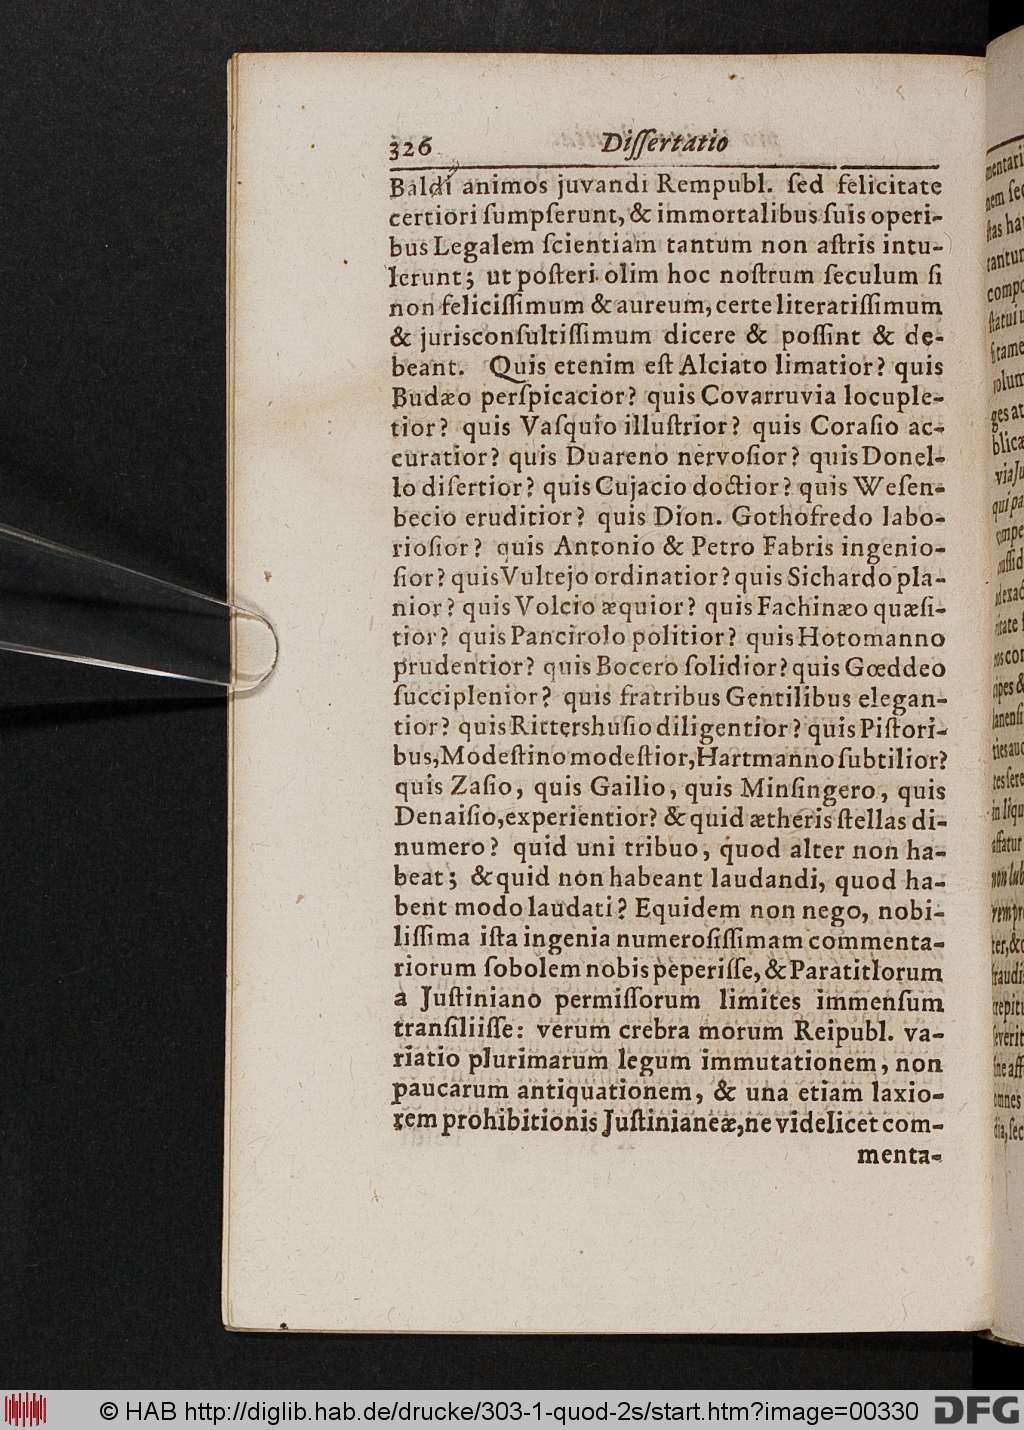 326 Dissertatio
Baldi animos juvandi Rempubl. ſed felicitate
certiori ſumpſerunt, & immortalibus ſuis operi-
bus Legalem ſcientiam tantum non aſtris intu-
lerunt; ut poſteri olim hoc noſtrum ſeculum ſi
non feliciſſimum & aureum, certe literatiſſimum
& jurisconſultiſſimum dicere & poſſint & de-
beant. Quis etenim eſt Alciato limatior? quis
Budæo perſpicacior? quis Covarruvia locuple-
tior? quis Vaſquio illuſtrior? quis Coraſio ac-
curatior? quis Duareno nervoſior? quis Donel-
lo diſertior? quis Cujacio doctior? quis Weſen-
becio eruditior? quis Dion. Gothofredo labo-
rioſior? quis Antonio & Petro Fabris ingenio-
ſior? quis Vultejo ordinatior? quis Sichardo pla-
nior? quis Volcio æquior? quis Fachinæo quæſi-
tior? quis Pancirolo politior? quis Hotomanno
prudentior? quis Bocero ſolidior? quis Gœddeo
ſucciplenior? quis fratribus Gentilibus elegan-
tior? quis Rittershuſio diligentior? quis Piſtori-
bus, Modeſtino modeſtior, Hartmanno ſubtilior?
quis Zaſio, quis Gailio, quis Minſingero, quis
Denaiſio, experientior? & quid ætheris ſtellas di-
numero? quid uni tribuo, quod alter non ha-
beat; & quid non habeant laudandi, quod ha-
bent modo laudati? Equidem non nego, nobi-
liſſima iſta ingenia numeroſiſſimam commenta-
riorum ſobolem nobis peperiſſe, & Paratitlorum
a Juſtiniano permiſſorum limites immenſum
tranſiliiſſe: verum crebra morum Reipubl. va-
riatio plurimarum legum immutationem, non
paucarum antiquationem, & una etiam laxio-
rem prohibitionis Juſtinianeæ, ne videlicet com-
menta-
© HAB http://diglib.hab.de/drucke/303-1-quod-2s/start.htm?image=00330 DFG